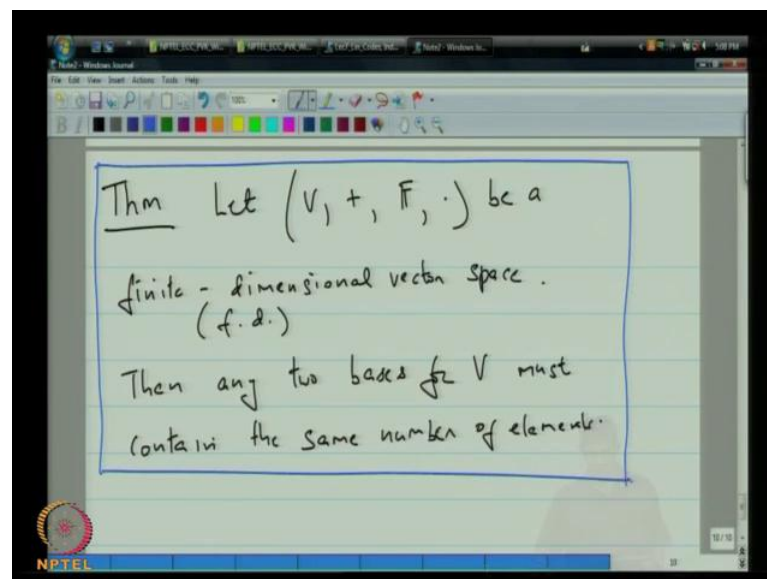 Note2 - Windows Journal
File Edit View Insert Actions Tools Help
Thm Let (V, +, F, ·) be a
finite - dimensional vector space.
(f.d.)
Then any two bases for V must
contain the same number of elements.
10/10
NPTEL